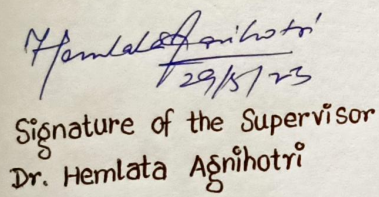 Hemlata Agnihotri
29/5/23
Signature of the Supervisor
Dr. Hemlata Agnihotri